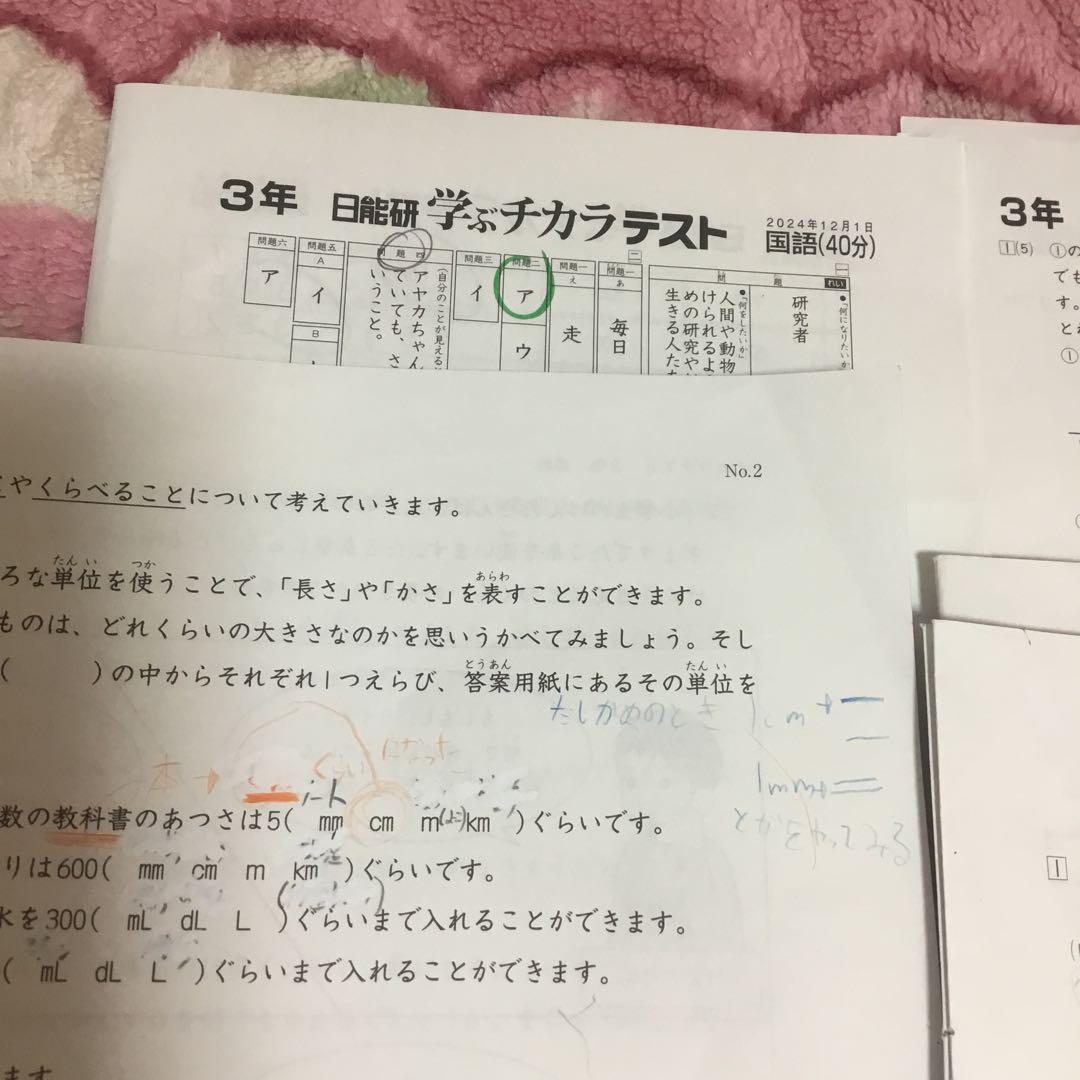 3年 日能研 学ぶチカラテスト
2024年12月1日
国語(40分)
れい
問題
●「何になりたいか
研究者
●「何をしたいか」
人間や動物
けられるよ
めの研究や
生きる人た
二
問題一
あ
毎日
問題一
え
走
問題二
ア
ウ
問題三
イ
問題四
(自分のことが見える
アヤカちゃん
ていても、さ
いうこと。
問題五
A
イ
B
問題六
ア
3年
1(5) ①の
でも
す。
と
①
No.2
やくらべることについて考えていきます。
ろな単位を使うことで、「長さ」や「かさ」を表すことができます。
たんい つか あらわ
ものは、どれくらいの大きさなのかを思いうかべてみましょう。そし
( )の中からそれぞれ1つえらび、答案用紙にあるその単位を
とうあん たんい
たしかめのとき 1cm→
1mm→
とかをやってみる
本→
ぐらいになった
数の教科書のあつさは5( mm cm m km )ぐらいです。
りは600( mm cm m km )ぐらいです。
水を300( mL dL L )ぐらいまで入れることができます。
( mL dL L )ぐらいまで入れることができます。
ます。
1